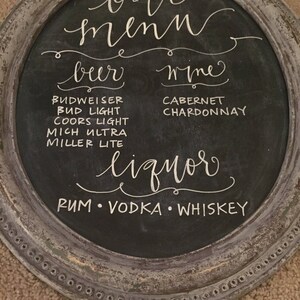 bar
menu
beer
BUDWEISER
BUD LIGHT
COORS LIGHT
MICH ULTRA
MILLER LITE
wine
CABERNET
CHARDONNAY
liquor
RUM • VODKA • WHISKEY